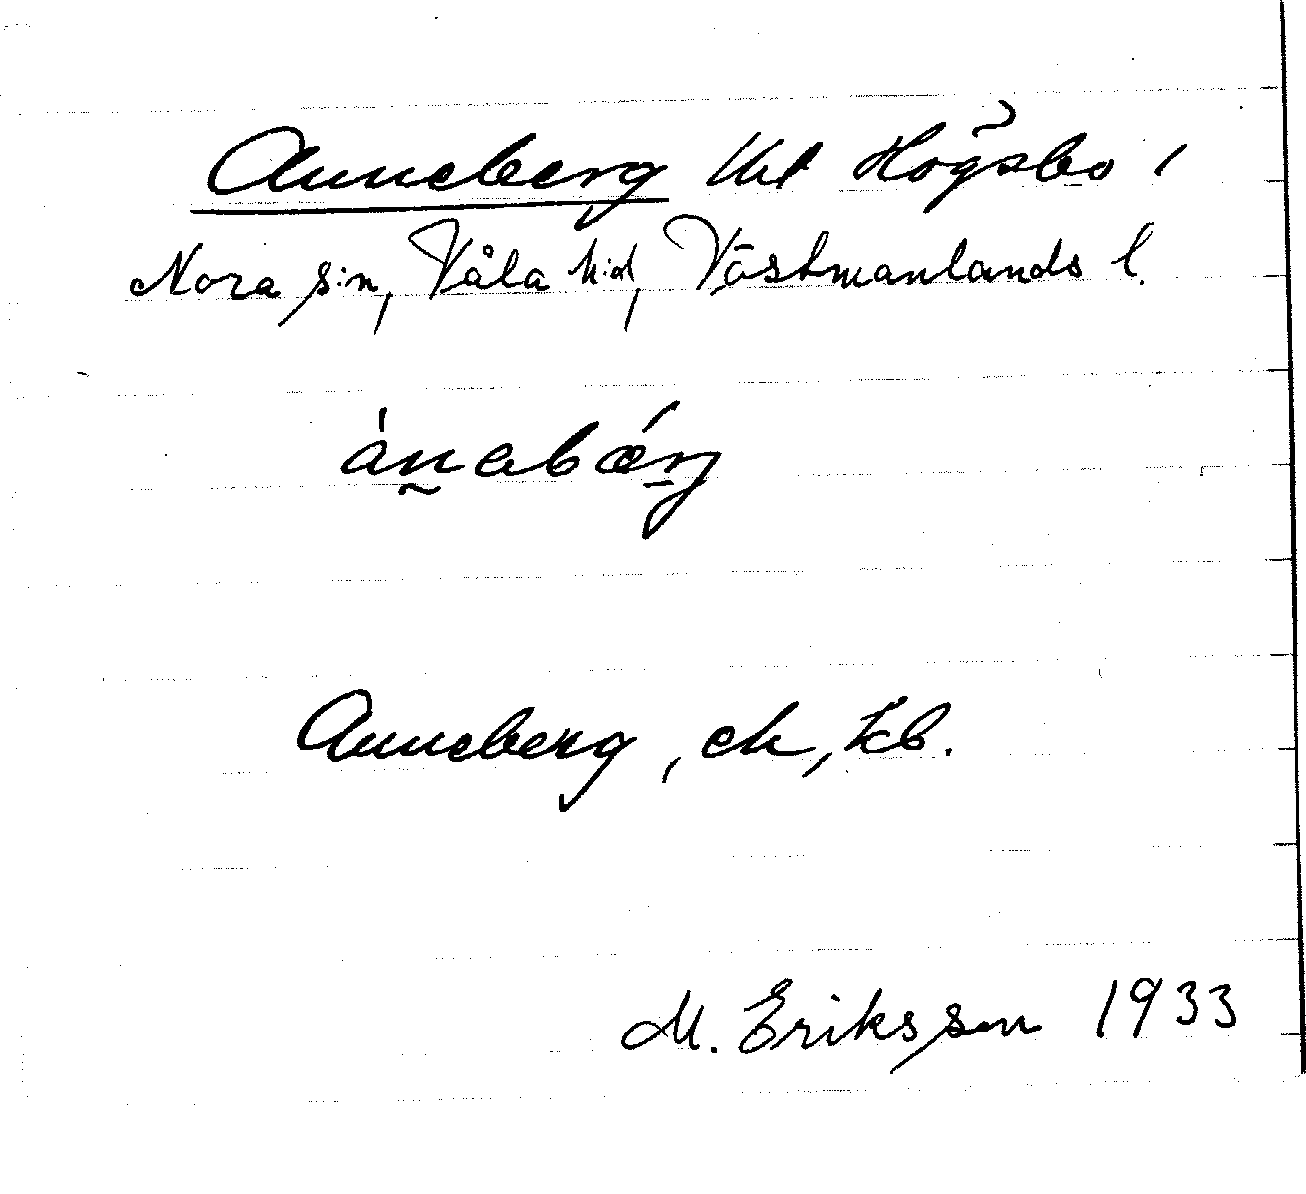 Anneberg Ukt Högsbo 1
Nora s:n, Våla h:d, Västmanlands l.
ánabǽrj
Anneberg, ek, kb.
M. Eriksson 1933